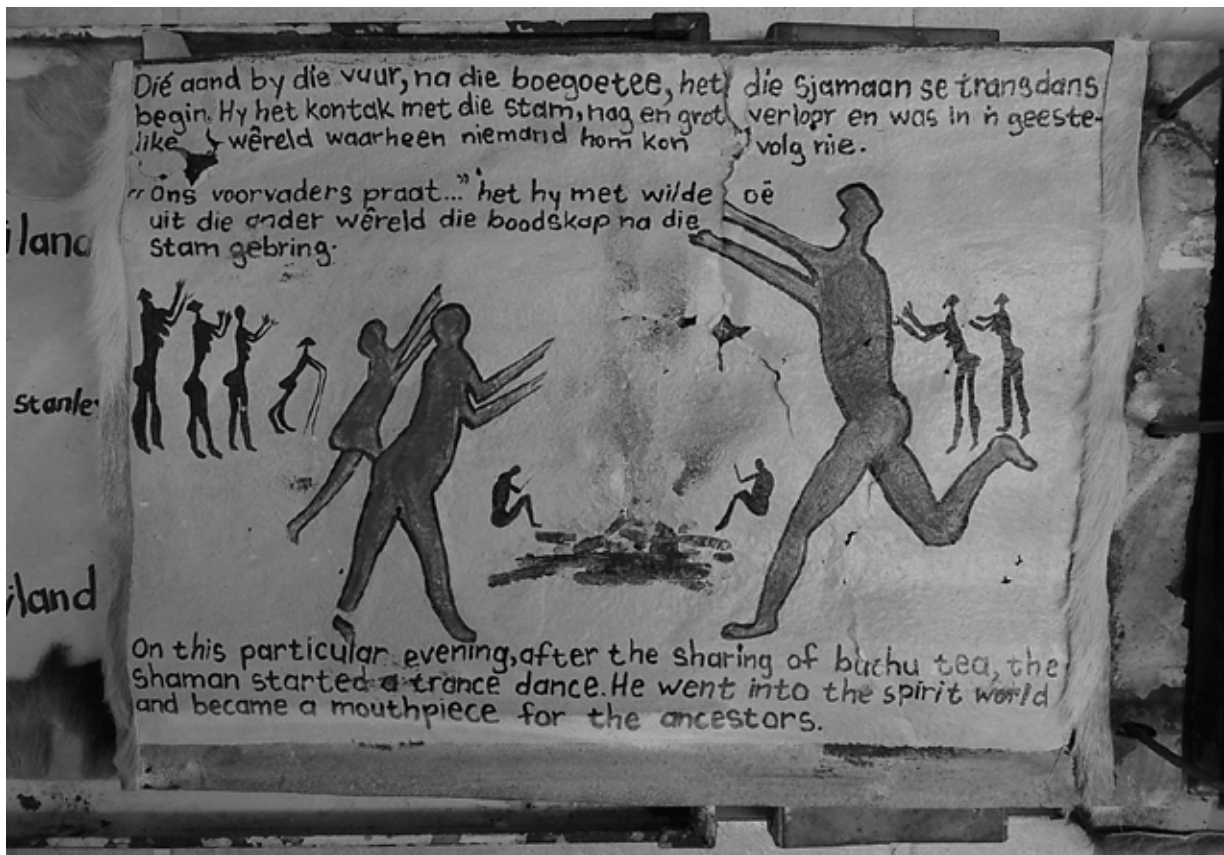 Dié aand by die vuur, na die boegoetee, het die Sjamaan se transdans
begin. Hy het kontak met die stam, nag en grot verloor en was in 'n geeste-
like wêreld waarheen niemand hom kon volg nie.
„Ons voorvaders praat...” het hy met wilde oë
uit die ander wêreld die boodskap na die
stam gebring.
iland
Stanley
iland
On this particular evening, after the sharing of buchu tea, the
Shaman started a trance dance. He went into the spirit world
and became a mouthpiece for the ancestors.